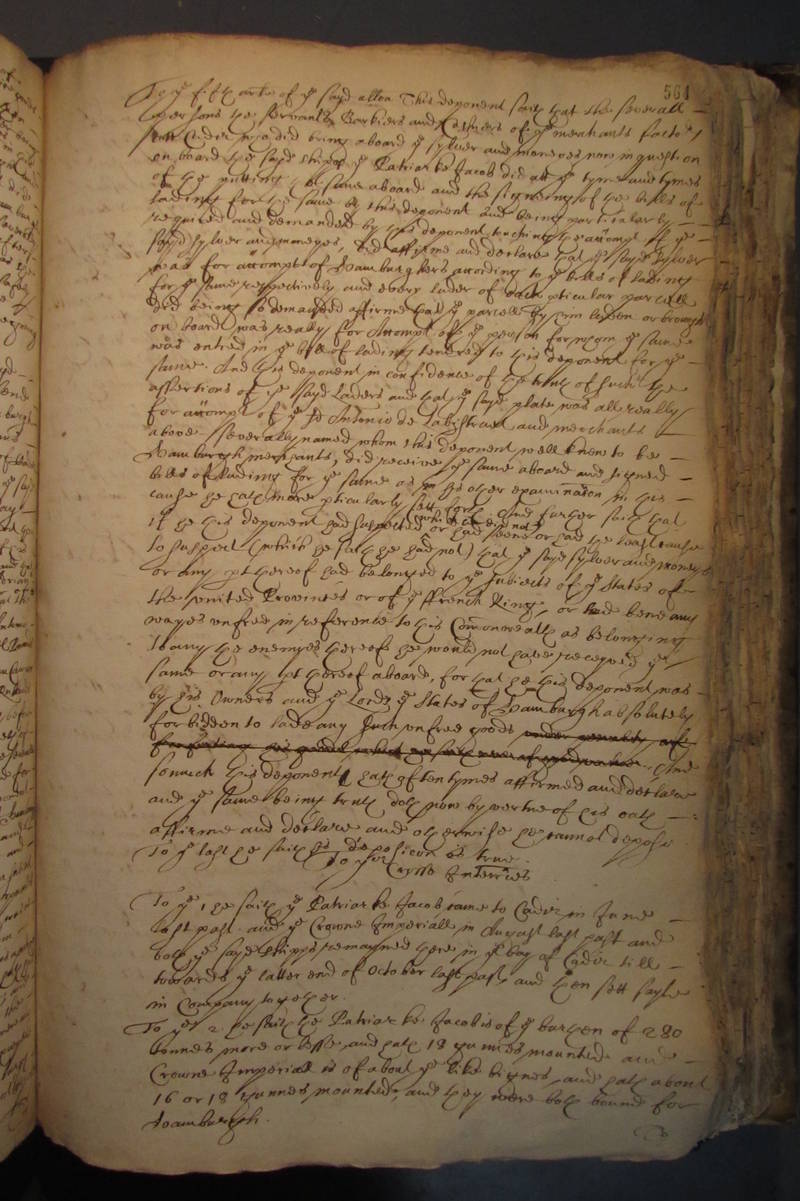 561
To ye fifth arte of ye sayd allon This deponent saith that the severall
persons the servants Barbiers and Cashiers of ye merchants factors
in Cadiz who did bring aboard ye sylver and moneyes now in question
on board the sayd shipp ye Patriarke Jacob did att ye tyme and tymes
of the putting the same aboard and the signeing of the bills of
lading for the same by this deponent and being particularly
required and demanded by this deponent touching the accompt of ye
sayd sylver and moneyes, did affirme and declare that ye sayd sylver
was for accompt of Hamburghers according to ye bills of lading
for ye same respectively and every lader of each pticular parcell
did being so demanded affirme that ye parcell by him laden or brought
on board was really for Accompt of ye person for whom ye same
was entred in ye bill of lading tendred to this deponent for ye
same. And this deponent in confidence of the truth of such the
assertions of ye sayd Laders and that ye sayd plate was all really
for accompt of ye sd Antonio de and merchants
above severally named whom this deponent well knew to be
Hamburgh merchants, did receive ye same aboard and signed
bills of lading for ye same as in his other examination in this
cause he hath more pticularly sett forth. And further saith that
which he did not
if he this deponent had suspected or had seene or had the least cause
to suspect (which he saith he had not) that ye sayd sylver and moneys
or any pt thereof had belonged to ye subjects of ye States of
the united Provinces or of ye ffrench King, or had bene any
wayes unfree in reference to this Comonwealth as belonging
to any the enemyes thereof he would not have received ye
same or any pt thereof aboard, for that he this deponent was
by his Owners and ye Lords ye States of Hamburgh absolutely
forbidden to lade any such unfree goods under penalty of
And
somuch this deponent hath often tymes affirmed and declare
and ye same being truth doth now by vertue of his oath
affirme and declare and otherwise he cannot depose
To ye last he saith his deposicon is true.
To ye Crosse Interries
To ye 1 he saith ye Patriarke Jacob came to Cadiz in June
last past and ye Crowne Imperiall in August last past and
both ye sayd shipps remayned there in ye bay of Cadiz till
towards ye latter end of October last past and then sett sayle
in Company together.
To ye 2 he saith the Patriarke Jacob is of ye burthen of 280
tonnes more or lesse and hath 18 gunnes mounted and
Crowne Imperiall is of about ye like bignes, and hath about
16 or 18 gunnes mounted, and they were both bound for
Hamburgh.